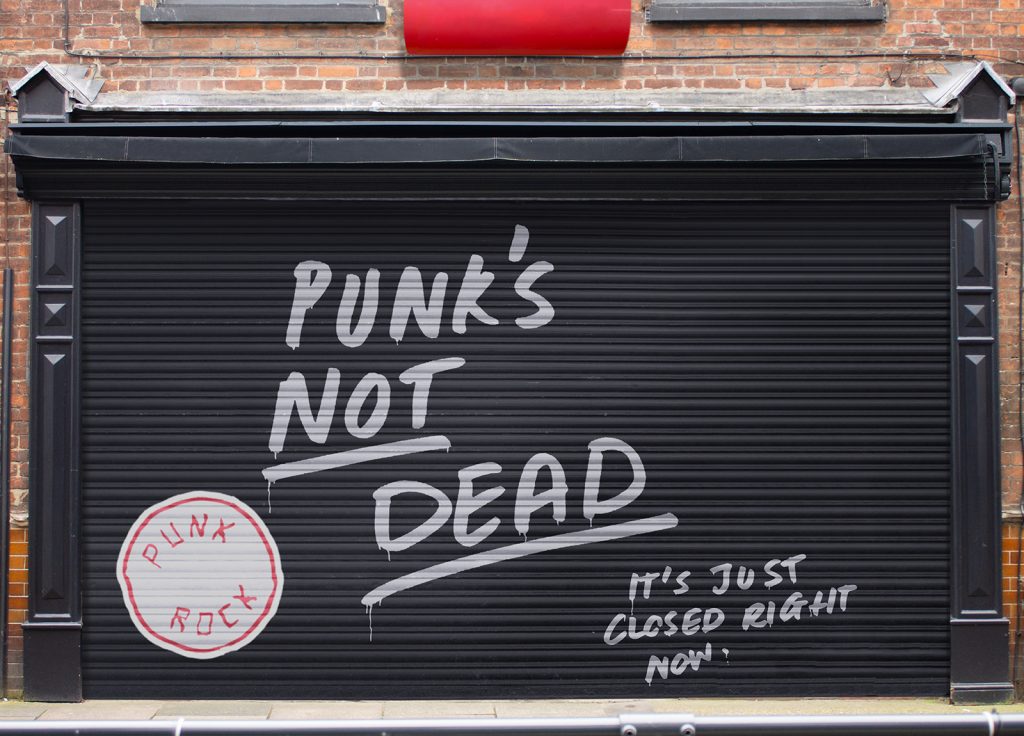 PUNK'S
NOT
DEAD
PUNK
ROCK
IT'S JUST
CLOSED RIGHT
NOW.